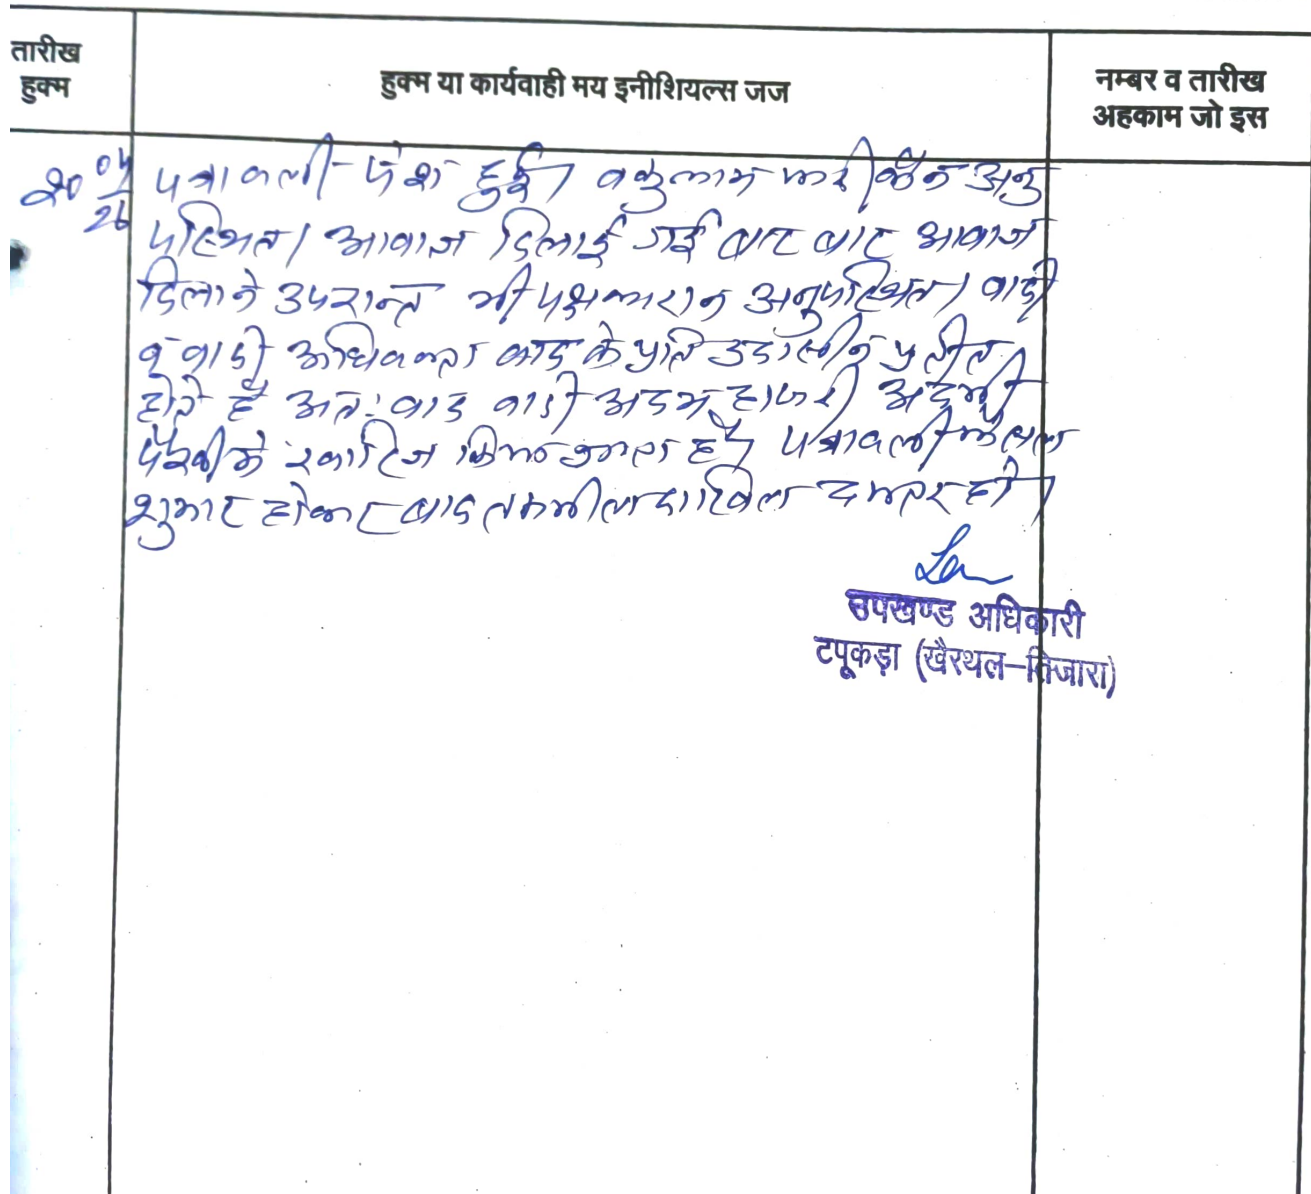 तारीख
हुक्म
हुक्म या कार्यवाही मय इनीशियल्स जज
नम्बर व तारीख
अहकाम जो इस
20 04
26
पत्रावली पेश हुई। वकुलाय फरीकैन अनु
पस्थित। आवाज दिलाई गई बार बार आवाज
दिलाने उपरान्त भी पक्षकारान अनुपस्थित। वादी
व वादी अधिवक्ता वाद के प्रति उदासीन प्रतीत
होते है अतः वाद वादी अदम हाजरी अदमी
पैरवी मे खारिज किया जाता है। पत्रावली फैसला
शुमार होकर बाद तकमील दाखिल दफ्तर हो।
उपखण्ड अधिकारी
टपूकड़ा (खैरथल-तिजारा)